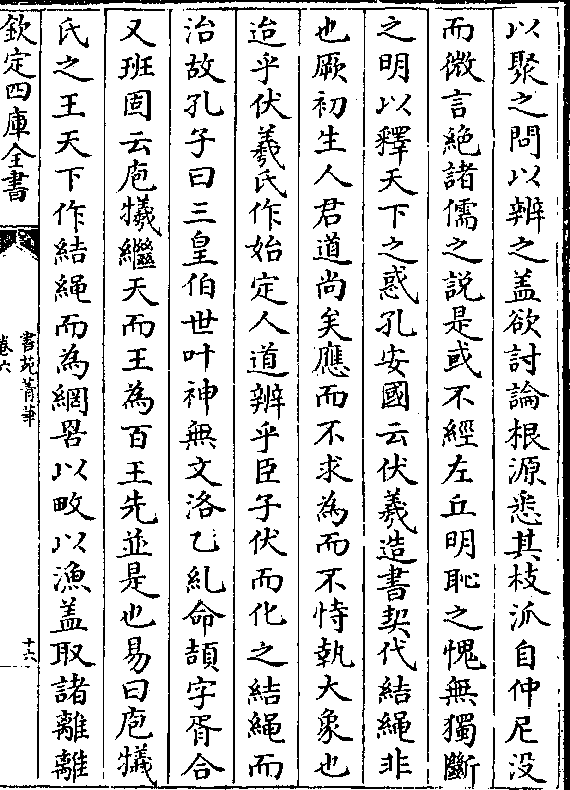 以聚之問以辨之盖欲討論根源悉其枝派自仲尼没
而微言絶諸儒之説是或不經左丘明恥之愧無獨斷
之明以釋天下之惑孔安國云伏羲造書契代結繩非
也厥初生人君道尚矣應而不求為而不恃執大象也
迨乎伏羲氏作始定人道辨乎臣子伏而化之結繩而
治故孔子曰三皇伯世叶神無文洛乙乣命頡字胥合
又班固云庖犧繼天而王為百王先並是也易曰庖犧
氏之王天下作結繩而為網罟以畋以漁盖取諸離離
欽定四庫全書
書苑菁華
卷六
十六